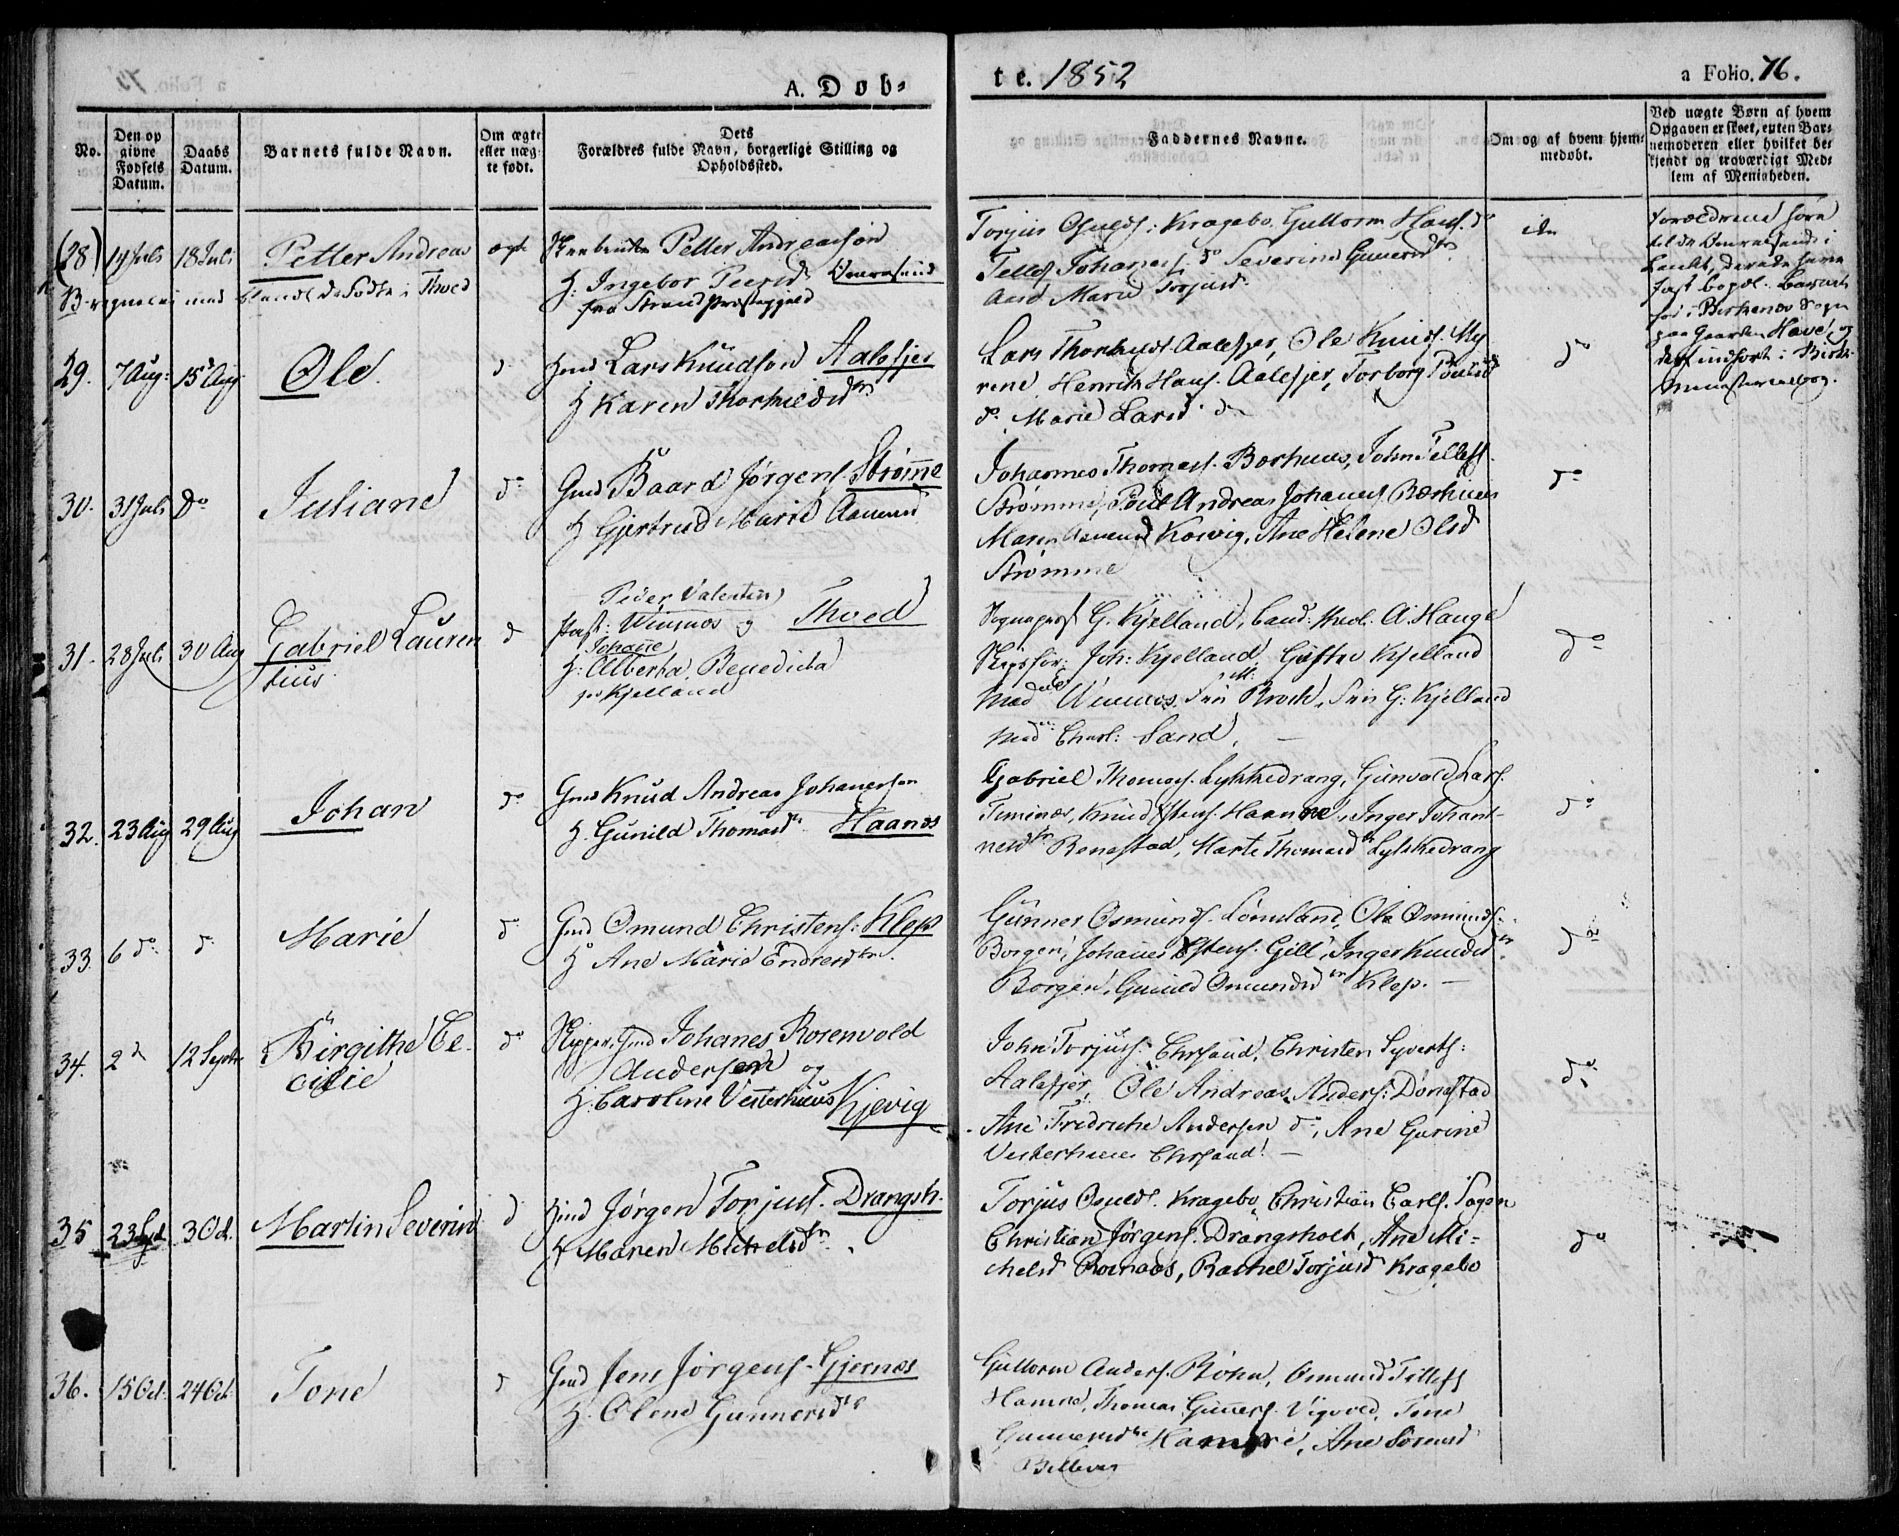 A. Døb-
te. 1852
a Folio. 76.
No.
Den op
givne
Fødsels
Datum.
Daabs
Datum.
Barnets fulde Navn.
Om ægte
eller uæg-
te født.
Dets
Forældres fulde Navn, borgerlige Stilling og
Opholdssted.
Faddernes Navne.
Om og af hvem hjem-
medøbt.
Ved uægte Børn af hvem
Opgaven er skeet, enten Bar-
nemoderen eller hvilket be-
kjendt og troværdigt Med-
lem af Menigheden.
(28) 14 Juli 18 Juli Petter Andreas ægte Petter Andreasson
H: Ingebor Peersd
fra Strand Præstegjeld
Torjus Osulds: Kragebo, Guttorm Hans. do
Tellef Johannes. do Severine Gunersdtr
Ane Marie Torjusd
Forældrene høre
fast bopæl. Barnet
i Birkenes Sogn
paa Gaarden Have, og
der indført i Birke.
Ministerialbog.
29. 7 Aug: 15 Aug Ole. do Gmd Lars Knudson Aalefjer
H Karen Thorkildsdtr
Lars Thorkilds Aalefjer, Ole Knuds. My
rene, Henrik Hans. Aalefjer, Torborg Poulsd
do Marie Larsd do
do
30. 31 Juli Do Juliane do Gmd Baard Jørgens. Strømme
H Gjertrud Marie Aanensd
Johannes Thomass. Borhuus, John Tellefs.
Strømme, Poul Andreas Johanes. Bærhuus
Maren Aanensd Kosvig, Ane Helene Olsd
Strømme
do
31. 28 Juli 30 Aug Gabriel Lauren
tius d Peder Valentin
Past: Winsnes og Thved
Johanne
H: Alberta Benedicta
f. Kjelland
Sogneprest G. Kjelland, Cand: theol. A. Hauge
Skipsfør: Joh: Kjelland, Gustav Kjelland
Mad Winsnes, Frk Broch, Frk G: Kjelland
Mad Charl: Sand,
do
32. 23 Aug 29 Aug Johan do Gmd Knud Andreas Johanesson
H. Gunild Thomasdtr Haanes
Gabriel Thomas. Lykkedrang, Gunvold Lars.
Timenes, Knud Ostens. Haanes, Inger Johan-
nesdtr Benestad, Marte Thomasdtr Lykkedrang
do
33. 6 do do Marie do Gmd Omund Christens: Klep
H Ane Marie Endresdtr.
Gunner Osmunds. Lømsland, Ole Omunds.
Borgen, Johanes Ostens. Gill, Inger Knudsdtr
Borgen, Gunild Omundsdtr Klep.
do
34. 2 do 12 Septr Birgithe Ce-
cilie do Skipper, Gmd Johanes Rosenvold
Andersen og
H. Caroline Vesterhuus Kjevig
John Torjuss. Chrsand, Christen Syverts:
Aalefjer, Ole Andreas Anders: Dønestad
Ane Fredrike Andersen do, Ane Gurine
Vesterhuus Chrsand.
do
35 23 Sept 3 Oct. Martin Severin d Hmd Jørgen Torjus. Drangsh.
H Maren Michelsdtr
Torjus Osulds. Kragebo, Christian Carls. Togen
Christian Jørgens. Drangsholt, Ane Mi-
chelsd Rosnæs, Rachel Torjusd Kragebo
do
36. 15 Oct. 24 Oct. Tone d Gmd Jens Jørgens. Gjernes
H. Olene Gunnersdtr
Guttorm Anders. Bøhn, Osmund Tellefs
Hamre, Thomas Gunners. Vigvold, Tone
Gunnersdtr Hamre, Ane Sørensd